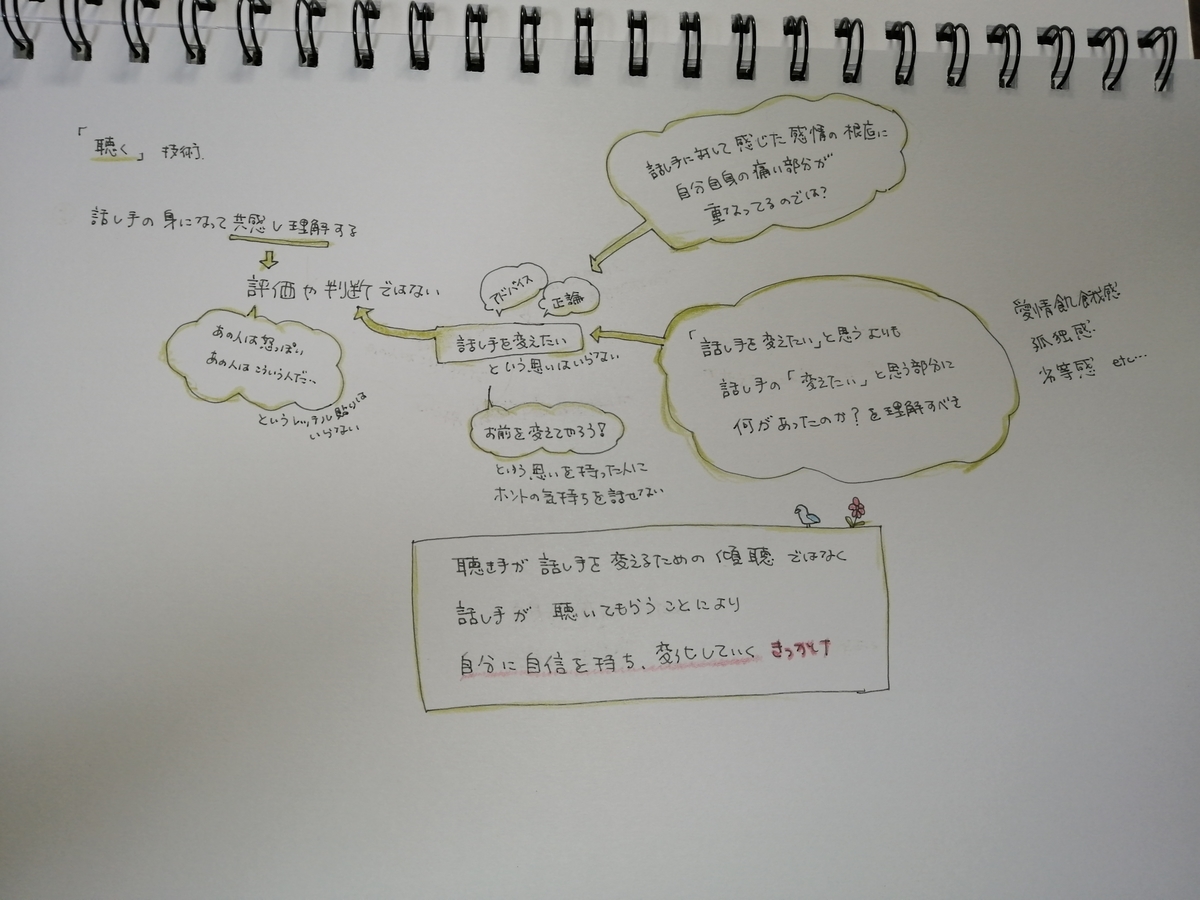 「聴く」技術.
話し手の身になって共感し理解する
評価や判断ではない
あの人は怒っぽい
あの人はこういう人だ…
というレッテル貼りは
いらない
アドバイス
正論
話し手を変えたい
という思いはいらない
お前を変えてやろう!
という思いを持った人に
ホントの気持ちを話せない
話し手に対して感じた感情の根底に
自分自身の痛い部分が
重なってるのでは?
「話し手を変えたい」と思うよりも
話し手の「変えたい」と思う部分に
何があったのか?を理解すべき
愛情飢餓感
孤独感
劣等感 etc…
聴き手が話し手を変えるための傾聴ではなく
話し手が聴いてもらうことにより
自分に自信を持ち、変化していくきっかけ